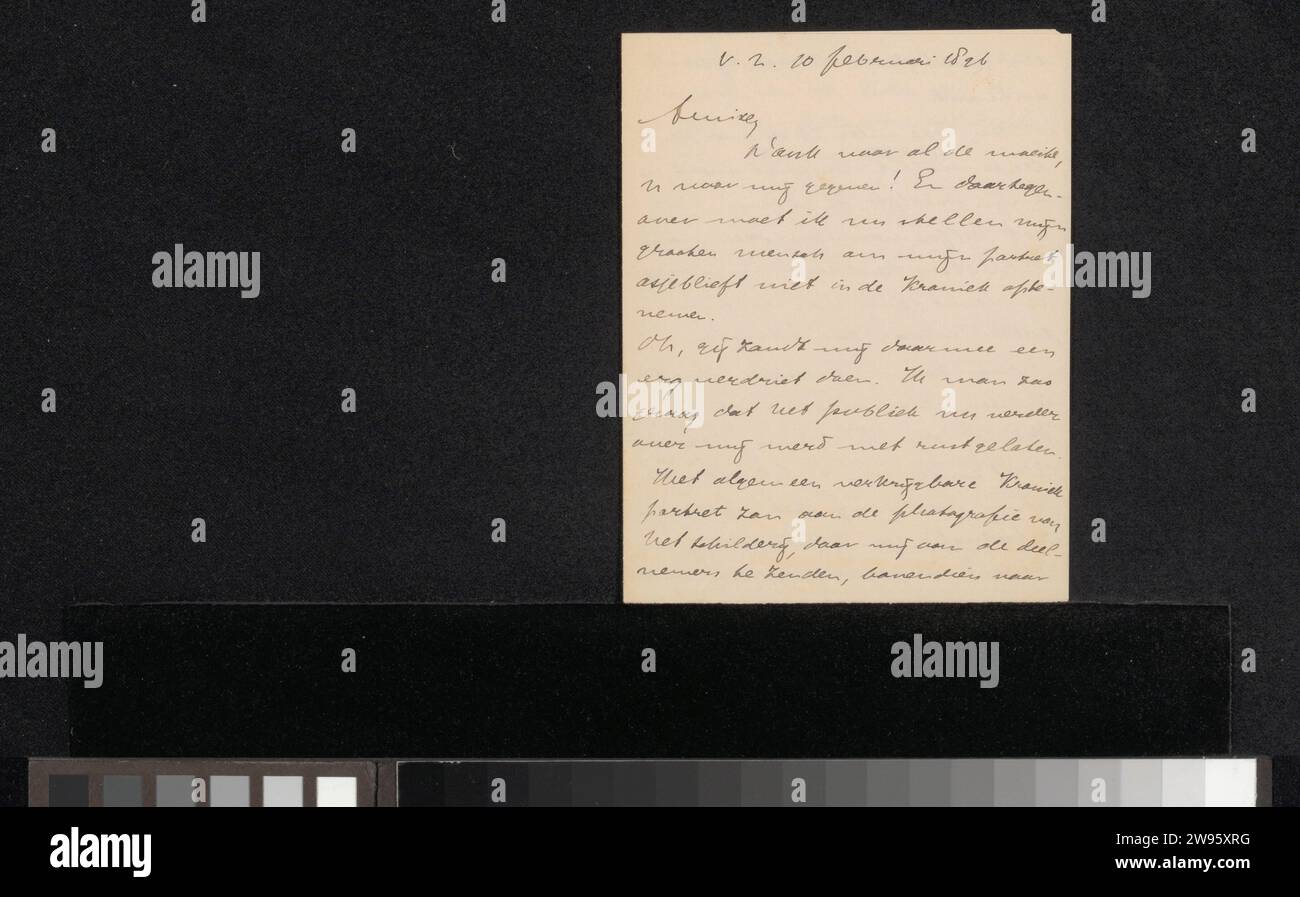 V. L. 10 februari 1896
Amice,
Dank voor al de moeite,
voor mij gegeven! En daartegen-
over moet ik nu stellen mijn
grooten wensch om mijn portret
asjeblieft niet in de Kroniek opte-
nemen.
Och, gij zoudt mij daarmee een
erg verdriet doen. Ik wou zoo
graag dat het publiek nu verder
over mij werd met rust gelaten.
Het algemeen verkrijgbare Kroniek
portret zou aan de photografie van
het schilderij, door mij aan de deel-
nemers te zenden, bovendien voor
alamy
alamy
alamy
alamy
alamy
alamy
Image ID: 2W95XRG
www.alamy.com